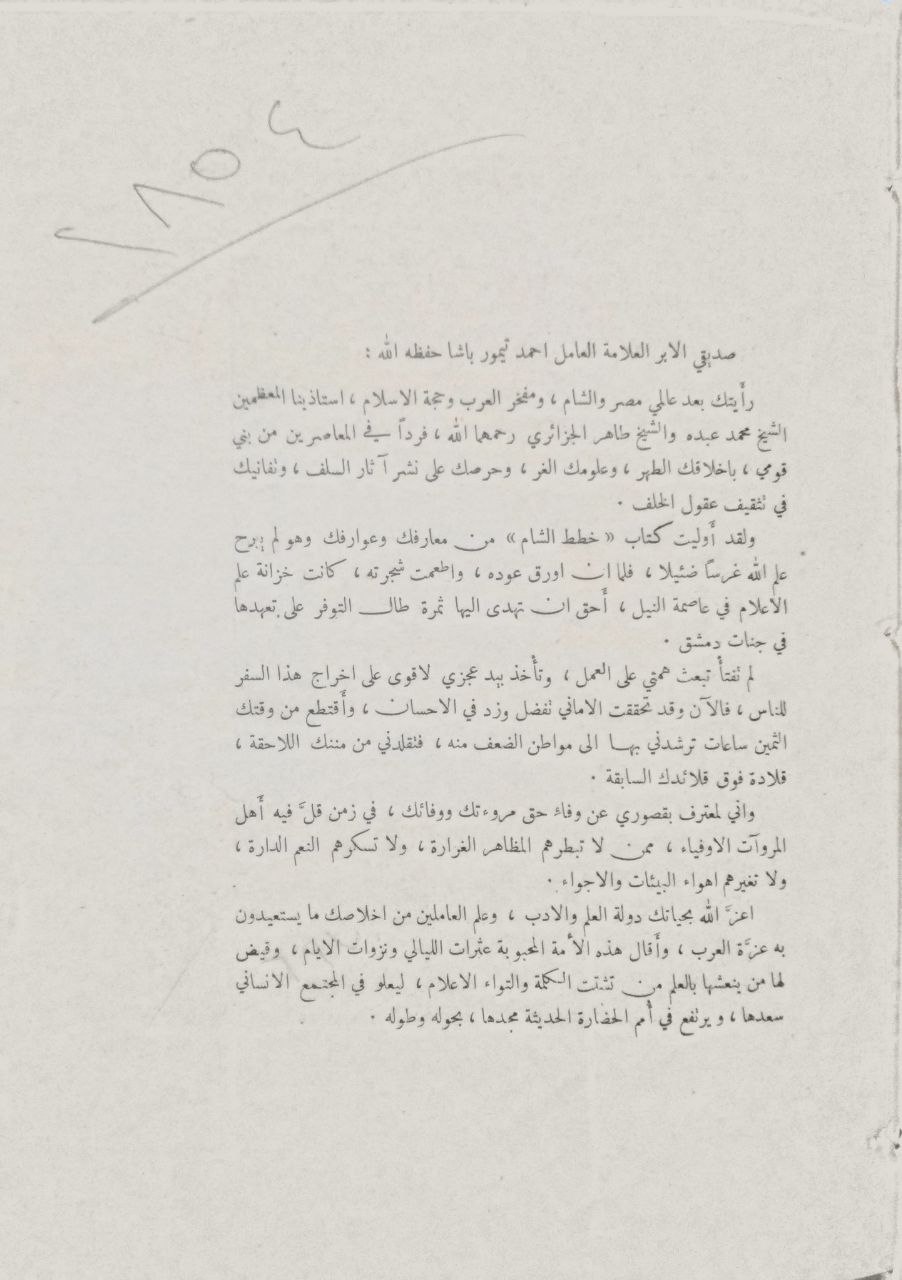 ٢١٥٤
صديقي الابر العلامة العامل احمد تيمور باشا حفظه الله :
رأَيتك بعد عالمي مصر والشام ، ومفخر العرب وحجة الاسلام ، استاذينا المعظمين
الشيخ محمد عبده والشيخ طاهر الجزائري رحمهما الله ، فرداً في المعاصرين من بني
قومي ، باخلاقك الطهر ، وعلومك الغر ، وحرصك على نشر آثار السلف ، وتفانيك
في تثقيف عقول الخلف .
ولقد أَوليت كتاب « خطط الشام » من معارفك وعوارفك وهو لم يبرح
علم الله غرساً ضئيلا ، فلما ان اورق عوده ، واطعمت شجرته ، كانت خزانة علم
الاعلام في عاصمة النيل ، أَحق ان تهدى اليها ثمرة طال التوفر على تعهدها
في جنات دمشق .
لم تفتأْ تبعث همتي على العمل ، وتأْخذ بيد عجزي لاقوى على اخراج هذا السفر
للناس ، فالآن وقد تحققت الاماني تفضل وزد في الاحسان ، وأَقتطع من وقتك
الثمين ساعات ترشدني بها الى مواطن الضعف منه ، فتقلدني من مننك اللاحقة ،
قلادة فوق قلائدك السابقة .
واني لمعترف بقصوري عن وفاء حق مروءتك ووفائك ، في زمن قلَّ فيه أَهل
المروآت الاوفياء ، ممن لا تبطرهم المظاهر الغرارة ، ولا تسكرهم النعم الدارة ،
ولا تغيرهم اهواء البيئات والاجواء .
اعزَّ الله بحياتك دولة العلم والادب ، وعلم العاملين من اخلاصك ما يستعيدون
به عزَّة العرب ، وأَقال هذه الأمة المحبوبة عثرات الليالي ونزوات الايام ، وقيض
لها من ينعشها بالعلم من تشتت الكلمة والتواء الاعلام ، ليعلو في المجتمع الانساني
سعدها ، ويرتفع في أُمم الحضارة الحديثة مجدها ، بحوله وطوله .